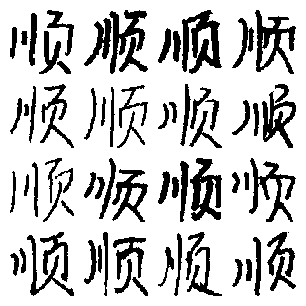 顺顺顺顺
顺顺顺顺
顺顺顺顺
顺顺顺顺